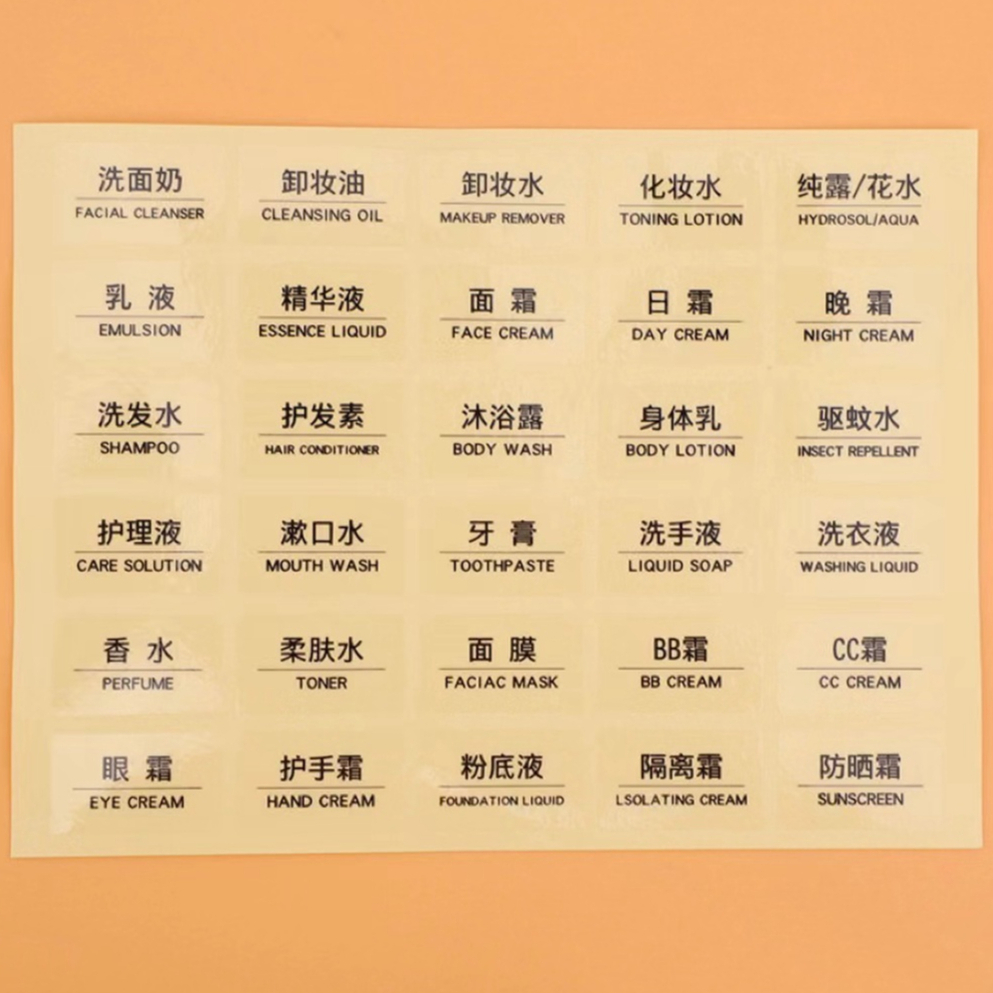 洗面奶
FACIAL CLEANSER
卸妆油
CLEANSING OIL
卸妆水
MAKEUP REMOVER
化妆水
TONING LOTION
纯露/花水
HYDROSOL/AQUA
乳 液
EMULSION
精华液
ESSENCE LIQUID
面 霜
FACE CREAM
日 霜
DAY CREAM
晚 霜
NIGHT CREAM
洗发水
SHAMPOO
护发素
HAIR CONDITIONER
沐浴露
BODY WASH
身体乳
BODY LOTION
驱蚊水
INSECT REPELLENT
护理液
CARE SOLUTION
漱口水
MOUTH WASH
牙 膏
TOOTHPASTE
洗手液
LIQUID SOAP
洗衣液
WASHING LIQUID
香 水
PERFUME
柔肤水
TONER
面 膜
FACIAC MASK
BB霜
BB CREAM
CC霜
CC CREAM
眼 霜
EYE CREAM
护手霜
HAND CREAM
粉底液
FOUNDATION LIQUID
隔离霜
LSOLATING CREAM
防晒霜
SUNSCREEN